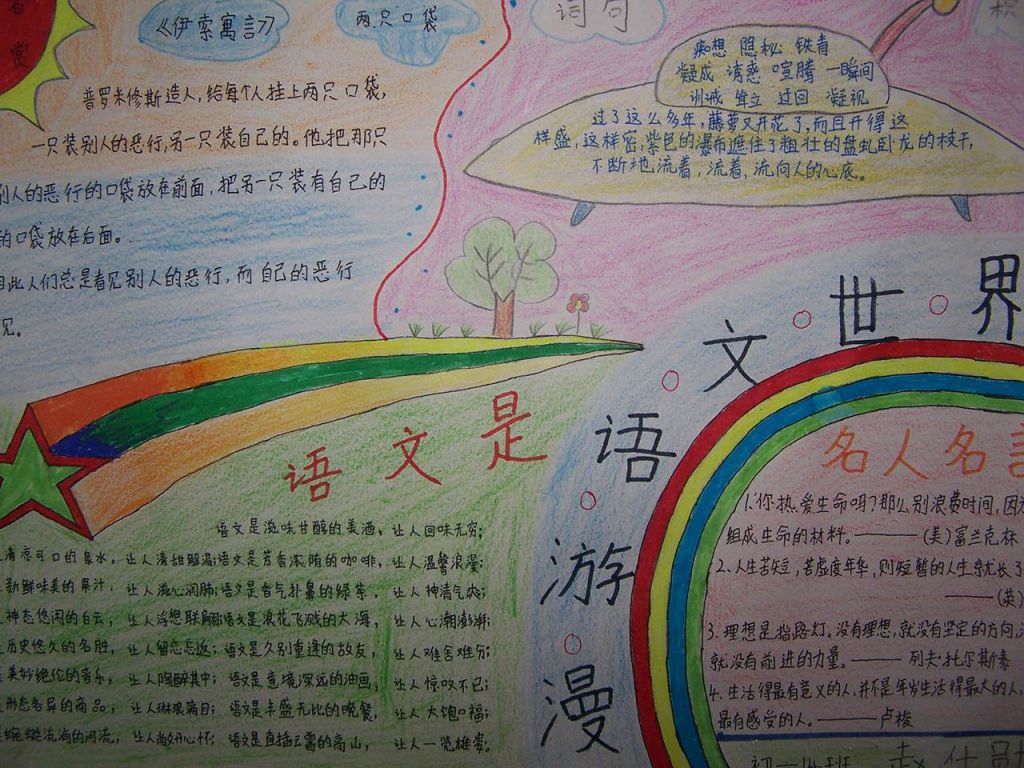 赏
《伊索寓言》
两只口袋
普罗米修斯造人,给每个人挂上两只口袋,
一只装别人的恶行,另一只装自己的。他把那只
别人的恶行的口袋放在前面,把另一只装有自己的
的口袋放在后面。
因此人们总是看见别人的恶行,而自己的恶行
见。
词句
积
痴想 隐秘 铁青
凝成 诱惑 喧腾 一瞬间
训诫 耸立 迂回 凝视
过了这么多年,藤萝又开花了,而且开得这
样盛,这样密,紫色的瀑布遮住了粗壮的盘虬卧龙的枝干,
不断地流着,流着,流向人的心底。
漫游语文世界
语文是
语文是滋味甘醇的美酒,让人回味无穷;
清凉可口的泉水,让人清甜解渴;语文是芳香浓郁的咖啡,让人温馨浪漫;
新鲜味美的果汁,让人滋心润肺;语文是香气扑鼻的绿茶,让人神清气爽;
神态悠闲的白云,让人浮想联翩;语文是浪花飞溅的大海,让人心潮澎湃;
历史悠久的名胜,让人留恋忘返;语文是久别重逢的故友,让人难舍难分;
美妙绝伦的音乐,让人陶醉其中;语文是意境深远的油画,让人惊叹不已;
形态各异的商品,让人琳琅满目;语文是丰盛无比的晚餐,让人大饱口福;
蜿蜒流淌的河流,让人敞开心怀;语文是直插云霄的高山,让人一览雄姿。
名人名言
1.你热爱生命吗?那么别浪费时间,因为
组成生命的材料。——(美)富兰克林
2.人生苦短,若虚度年华,则短暂的人生就长了
——(英)
3.理想是指路灯。没有理想,就没有坚定的方向,
就没有前进的力量。——列夫·托尔斯泰
4.生活得最有意义的人,并不是年岁活得最大的人,
最有感受的人。——卢梭
初一14班